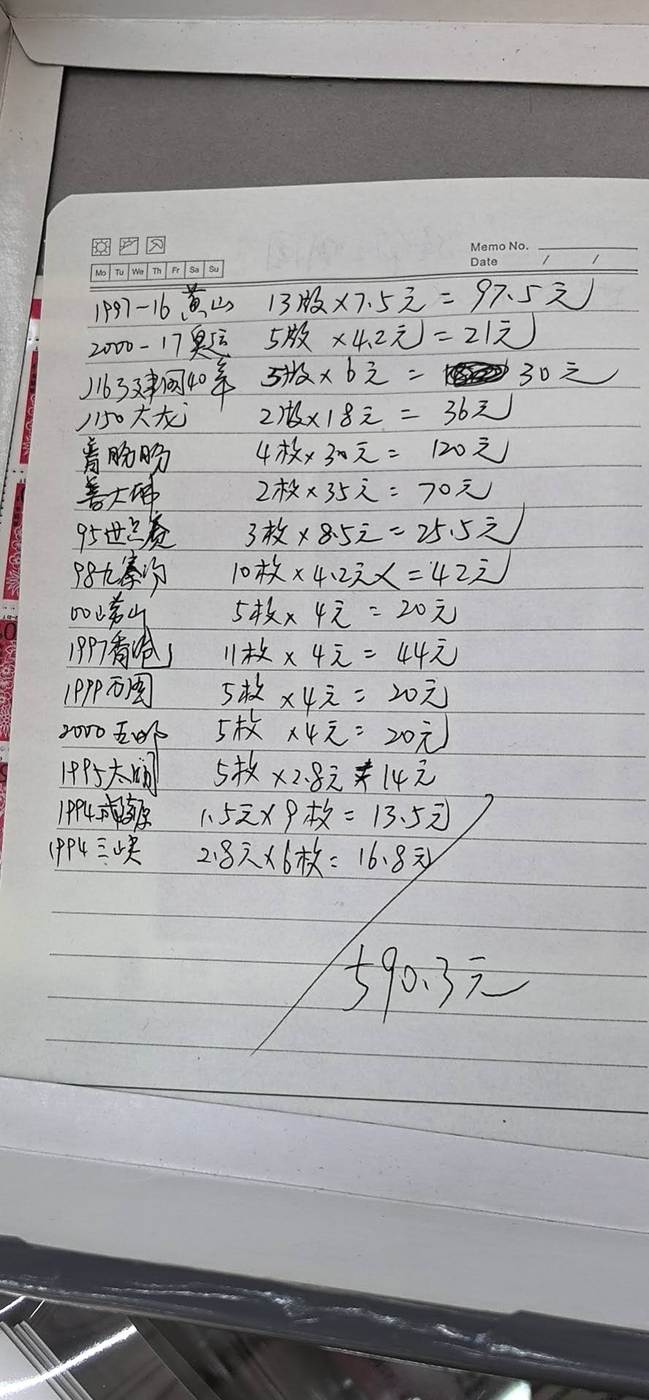 Memo No.
Mo Tu We Th Fr Sa Su Date / /
1997-16 黄山 13版×7.5元=97.5元
2000-17奥运 5版×4.2元=21元
J163建国40年 5版×6元= 30元
J150大龙 2版×18元=36元
青盼盼 4枚×30元=120元
普大师 2枚×35元=70元
95世乒赛 3枚×8.5元=25.5元
98九寨沟 10枚×4.2元=42元
00崂山 5枚×4元=20元
1997香港 11枚×4元=44元
1999万国 5枚×4元=20元
2000 5枚×4元=20元
1995太湖 5枚×2.8元=14元
1994武陵源 1.5元×9枚=13.5元
1994三峡 2.8元×6枚=16.8元
590.3元